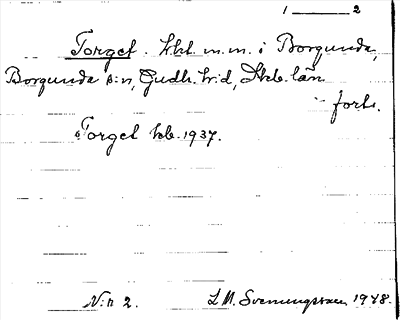 1 ___ 2
Torget. kbt m.m. i Borgunda,
Borgunda s:n, Gudh. h:d, Skb. län
forts.
Torget kb. 1937.
N:r 2. L. M. Svenungsson 1948.